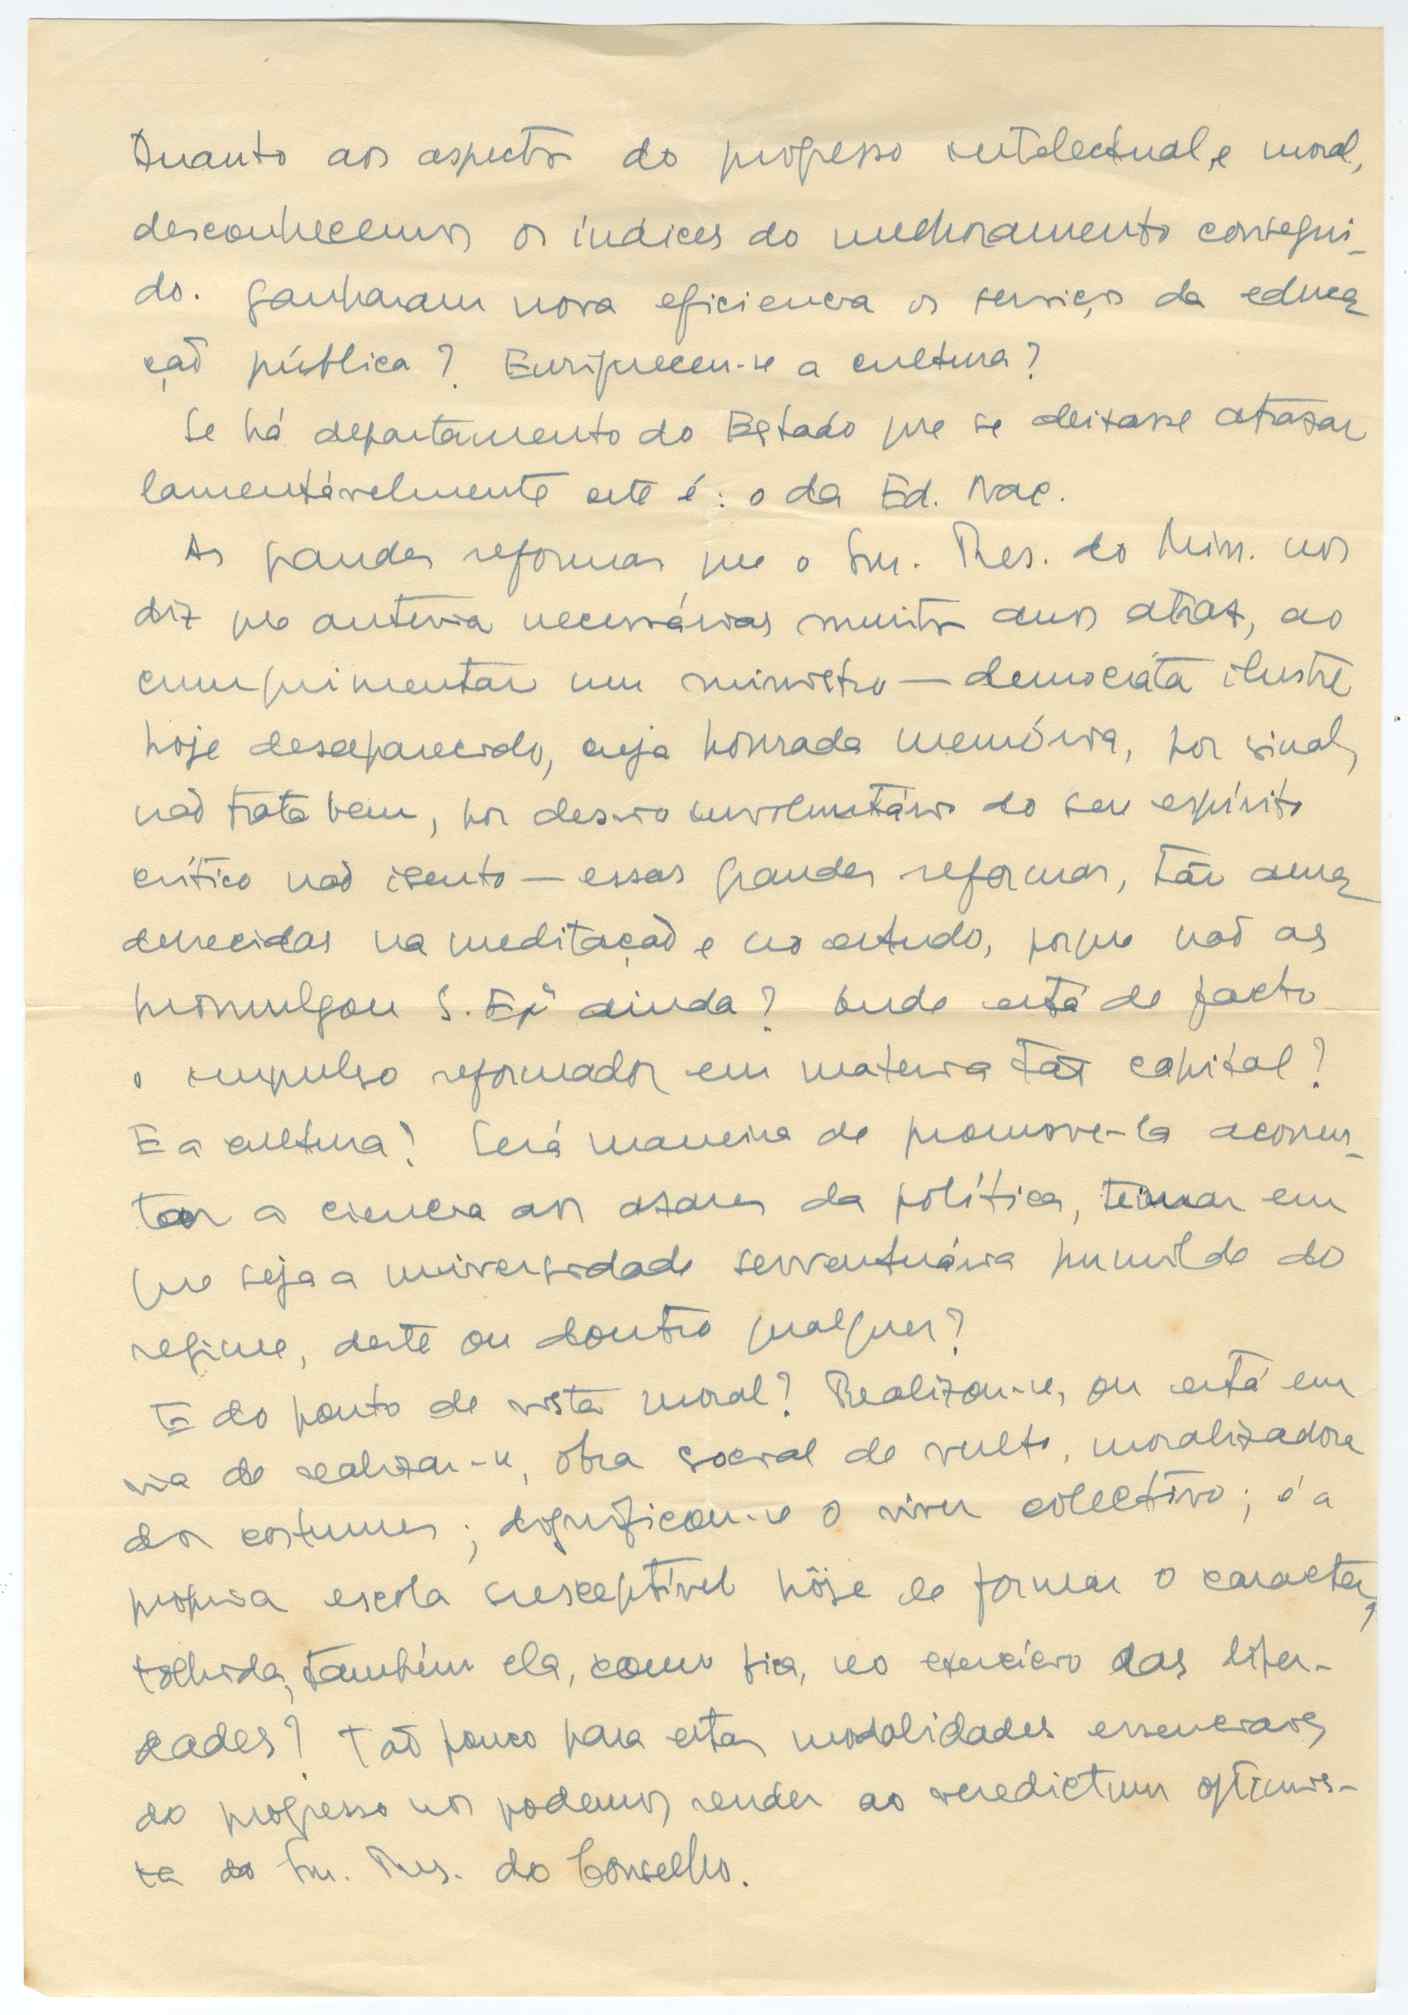 Quanto aos aspectos do progresso intelectual, e moral,
desconhecemos os índices do melhoramento consegui-
do. Ganharam nova eficiencia os serviços da educa
ção pública? Enriqueceu-se a cultura?
Se há departamento do Estado que se deixasse atrazar
lamentávelmente este é: o da Ed. Nac.
As grandes reformas que o Snr. Pres. do Min. nos
diz que antevia necessárias muitos anos atraz, ao
cumprimentar um ministro — democráta ilustre
hoje desaparecido, cuja honrada memória, por sinal,
não trata bem, por desvio involuntário do seu espírito
crítico não isento — essas grandes reformas, tão ama
durecidas na meditação e no estudo, porque não as
promulgou S. Exª ainda? Onde está de facto
o impulso reformador em materia tão capital?
E a cultura? Será maneira de promove-la acorren-
tar a ciencia aos azares da política, teimar em
que seja a universidade serventuária humilde do
regime, deste ou doutro qualquer?
E do ponto de vista moral? Realizou-se, ou está em
via de realizar-se, obra social de vulto, moralizadora
dos costumes; dignificou-se o viver colectivo; é a
propria escola susceptível hôje de formar o caracter,
tolhida, também ela, como fica, no exercício das liber-
dades? Tão pouco para estas modalidades essenciais
do progresso nos podemos render ao veredictum optimis-
ta do Snr. Pres. do Conselho.